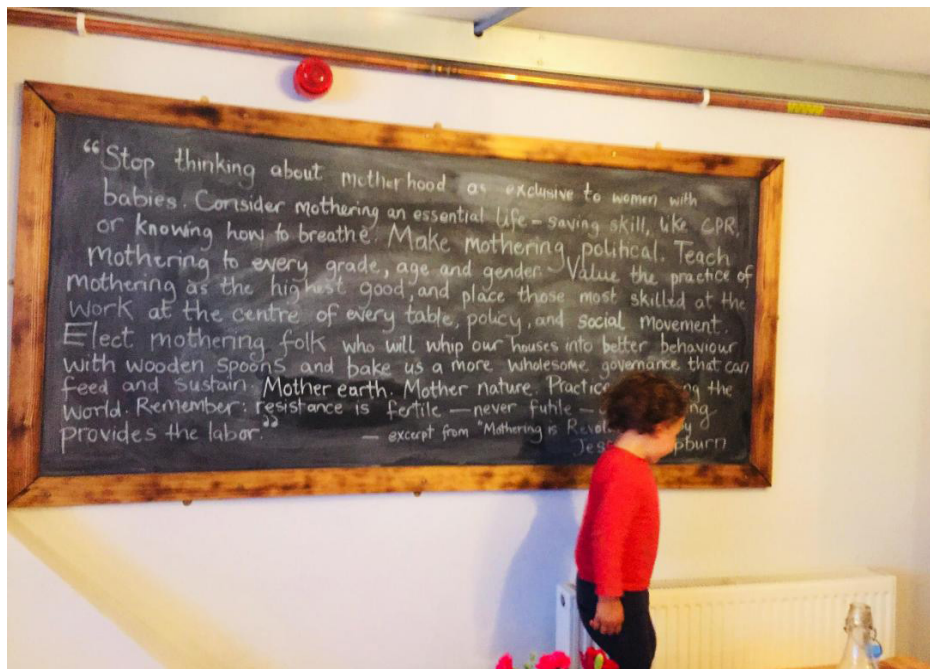 “Stop thinking about motherhood as exclusive to women with
babies. Consider mothering an essential life-saving skill, like CPR,
or knowing how to breathe. Make mothering political. Teach
mothering to every grade, age and gender. Value the practice of
mothering as the highest good, and place those most skilled at the
work at the centre of every table, policy, and social movement.
Elect mothering folk who will whip our houses into better behaviour
with wooden spoons and bake us a more wholesome governance that can
feed and sustain. Mother earth. Mother nature. Practice the
world. Remember: resistance is fertile — never futile —
provides the labor.”
— excerpt from "Mothering is